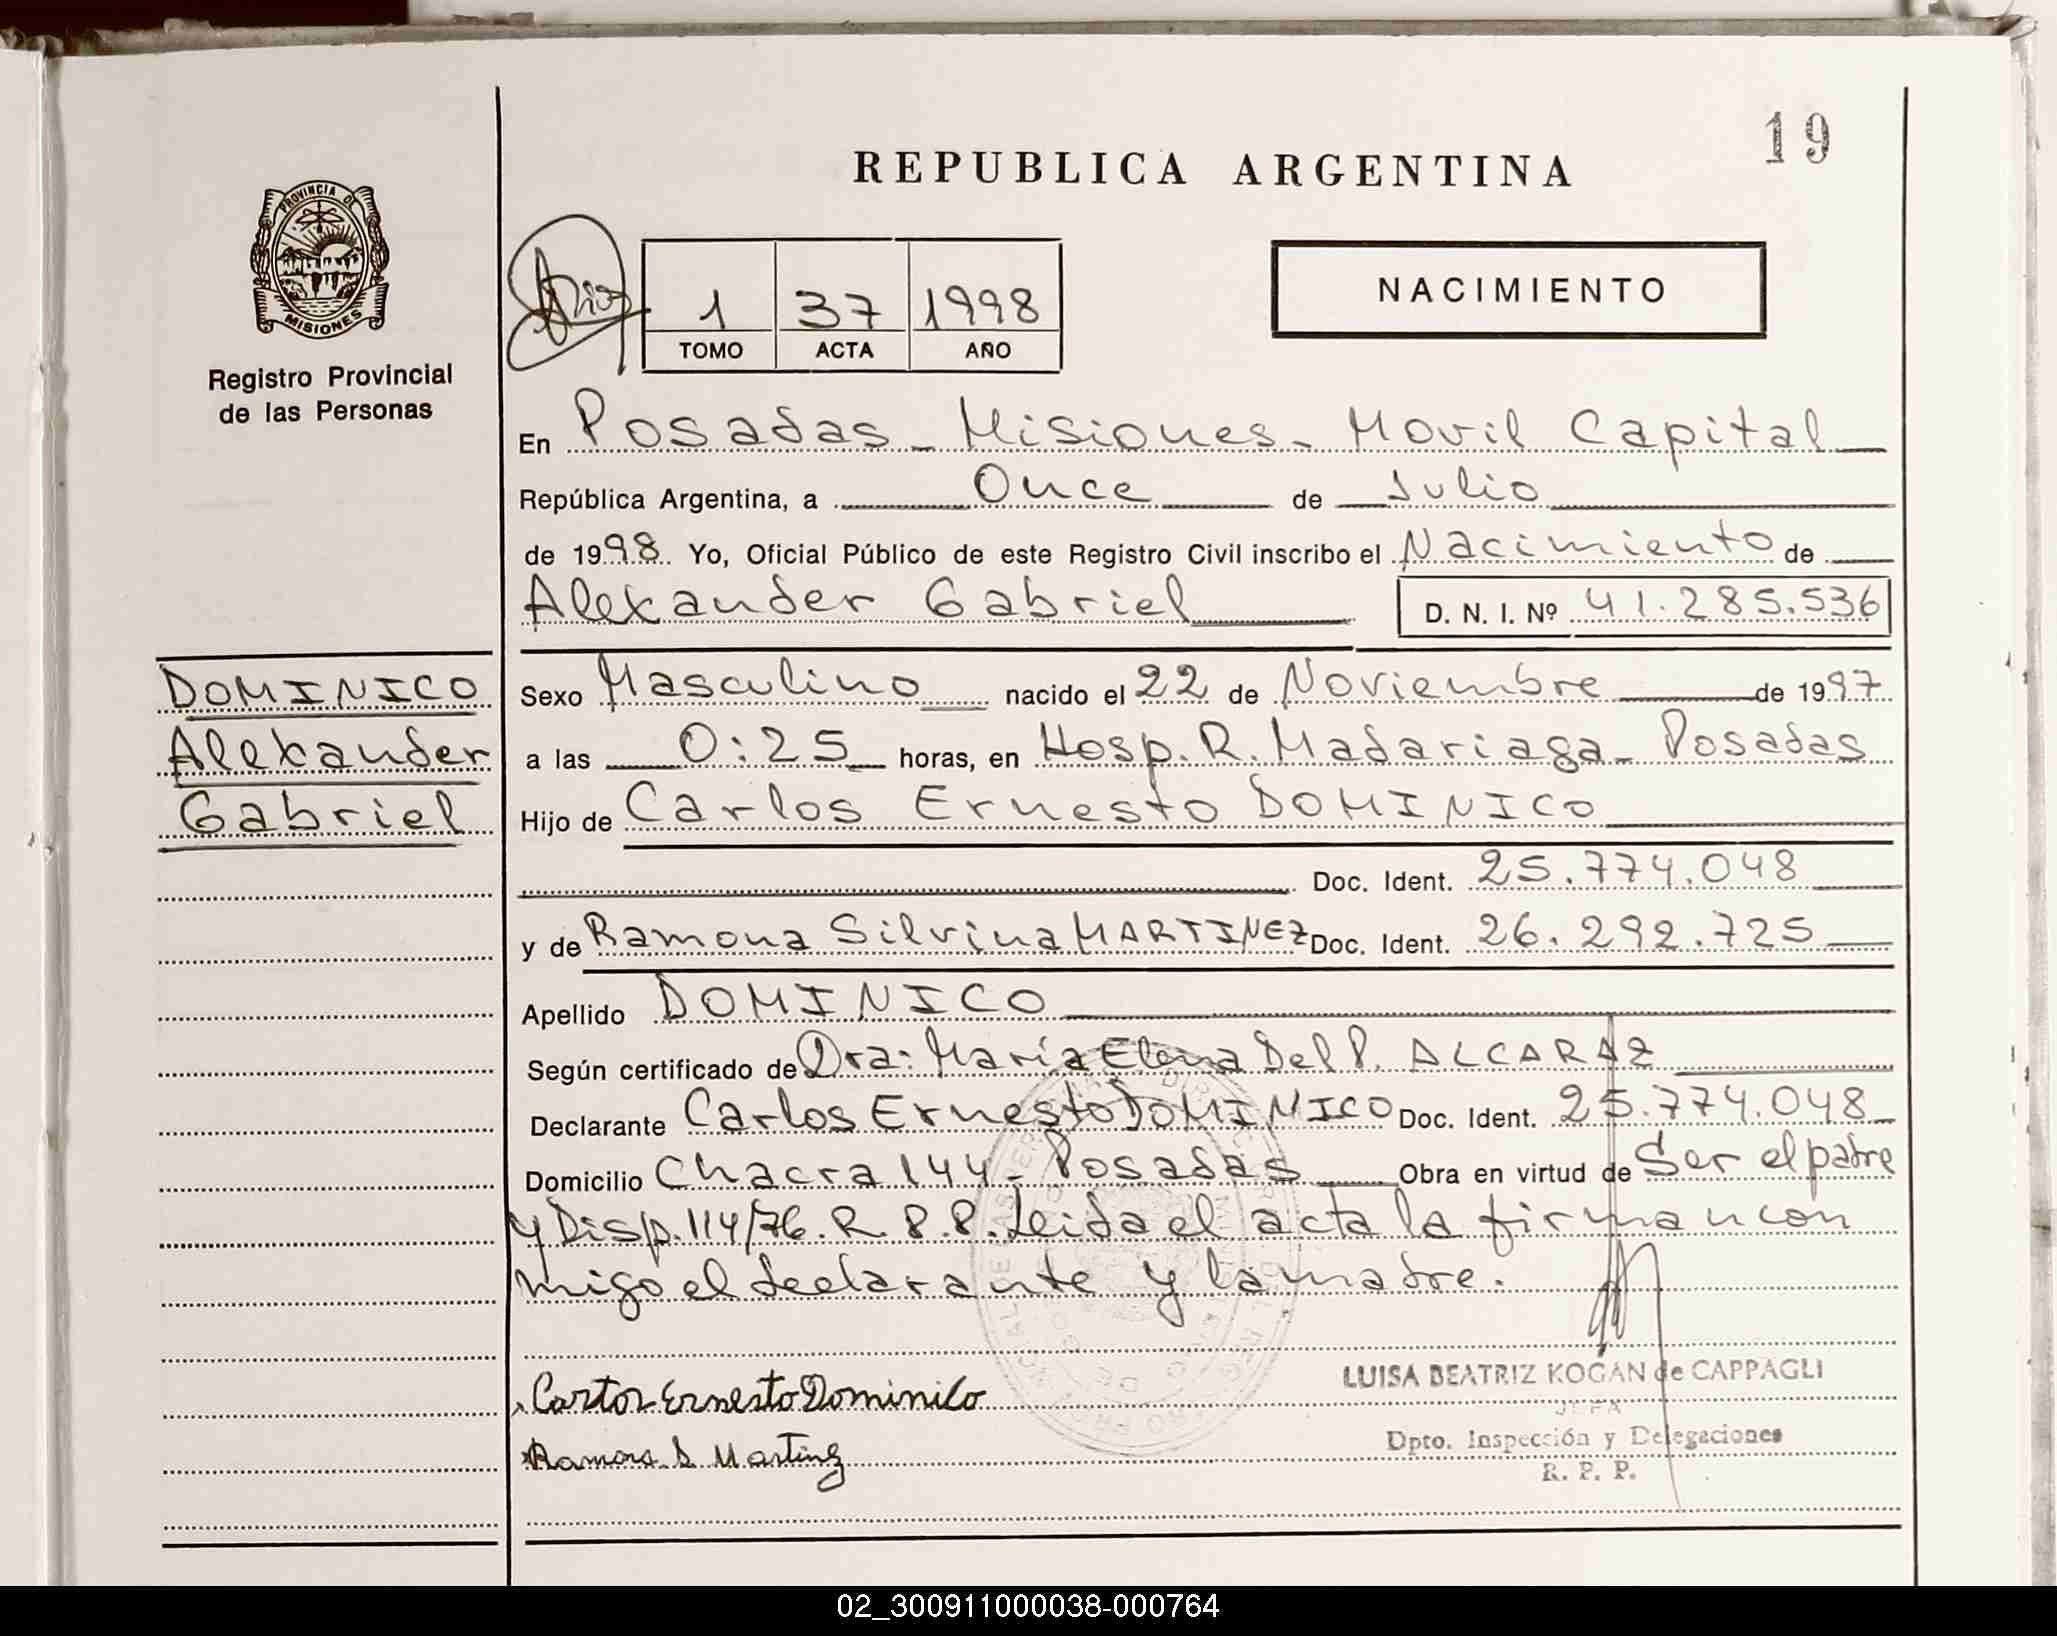 19
REPUBLICA ARGENTINA
PROVINCIA DE
MISIONES
Registro Provincial
de las Personas
1 37 1998
TOMO ACTA AÑO
NACIMIENTO
En Posadas - Misiones - Movil Capital
República Argentina, a Once de Julio
de 1998. Yo, Oficial Público de este Registro Civil inscribo el Nacimiento de
Alexander Gabriel D. N. I. Nº 41.285.536
DOMINICO
Alexander
Gabriel
Sexo Masculino nacido el 22 de Noviembre de 1997
a las 0:25 horas, en Hosp. R. Madariaga - Posadas
Hijo de Carlos Ernesto DOMINICO
Doc. Ident. 25.774.048
y de Ramona Silvina MARTINEZ Doc. Ident. 26.292.725
Apellido DOMINICO
Según certificado de Dra: María Elena Del P. ALCARAZ
Declarante Carlos Ernesto DOMINICO Doc. Ident. 25.774.048
Domicilio Chacra 144 - Posadas Obra en virtud de Ser el padre
y Disp. 114/76. R. P. P. Leida el acta la firman con
migo el declarante y la madre.
Carlos Ernesto Dominico
Ramona S Martinez
LUISA BEATRIZ KOGAN de CAPPAGLI
JEFA
Dpto. Inspección y Delegaciones
R. P. P.
02_300911000038-000764